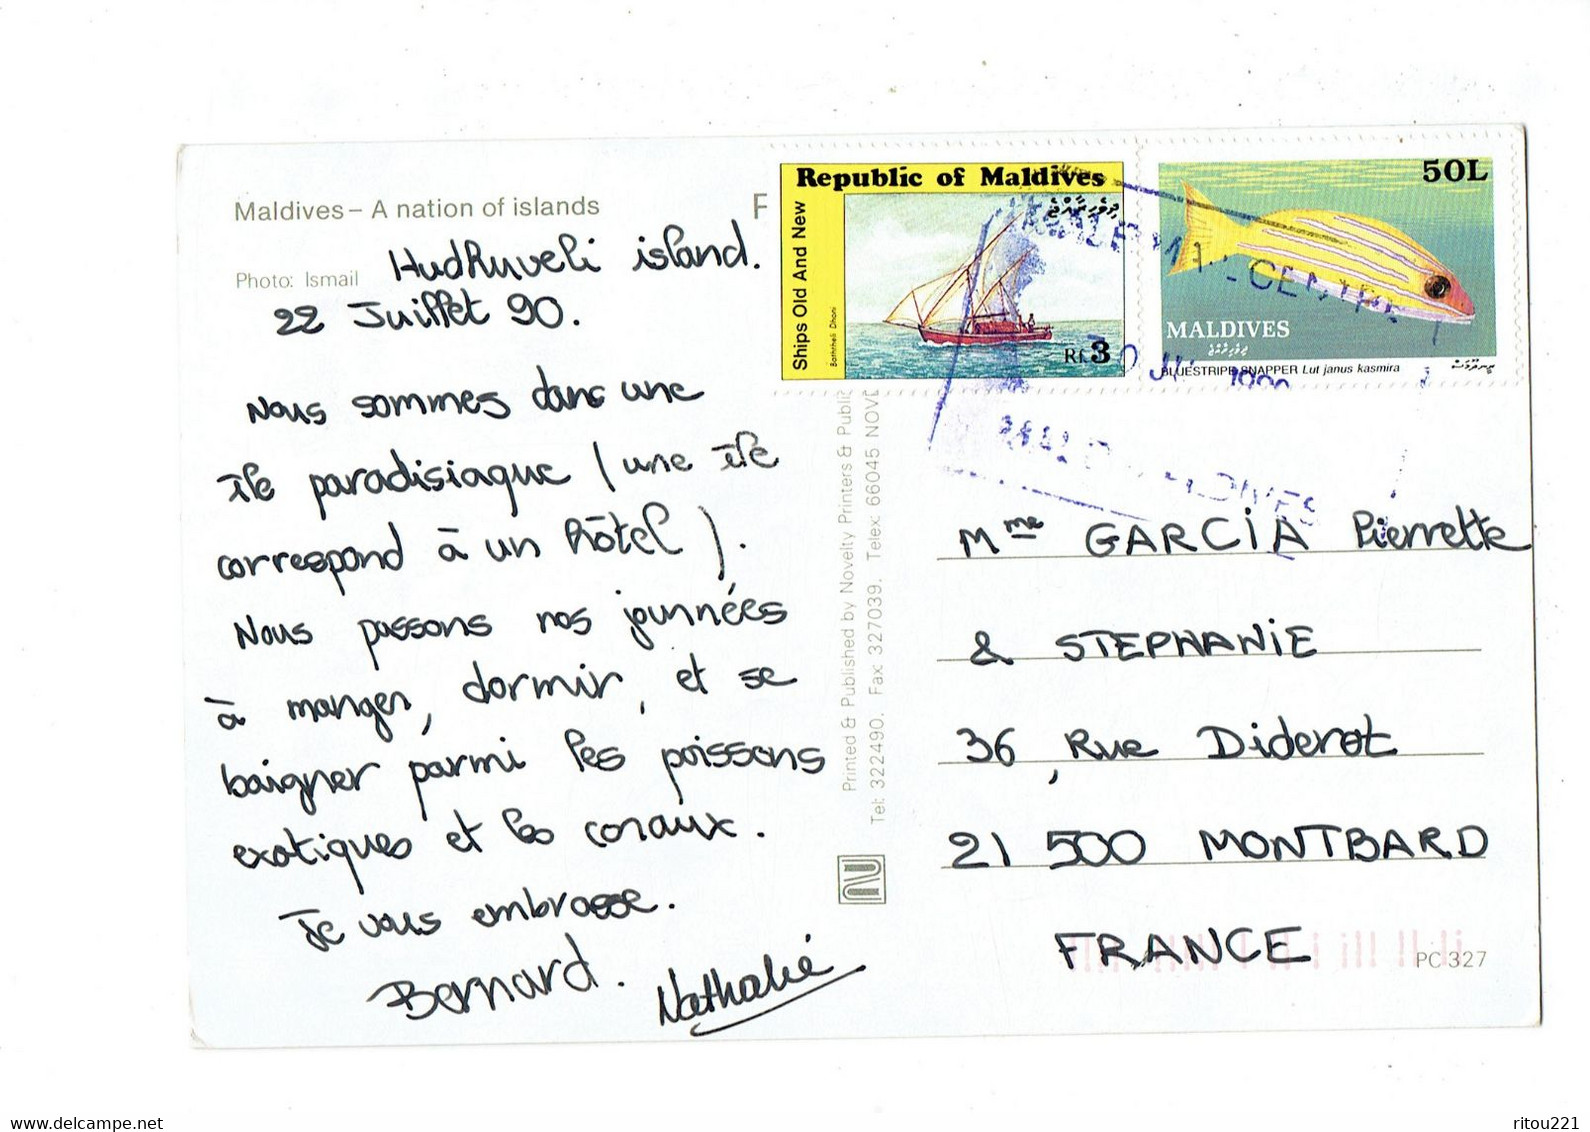 Maldives – A nation of islands
Photo: Ismail
Hudhuveli island.
22 Juillet 90.
Nous sommes dans une
île paradisiaque (une île
correspond à un hôtel).
Nous passons nos journées
à manger, dormir, et se
baigner parmi les poissons
exotiques et les coraux.
Je vous embrasse.
Bernard. Nathalie
Printed & Published by Novelty Printers & Publi
Tel: 322490. Fax: 327039. Telex: 66045 NOV
Republic of Maldives
Ships Old And New
Rf.3
50L
MALDIVES
BLUESTRIPE SNAPPER Lutjanus kasmira
Mme GARCIA Pierrette
& STEPHANIE
36, Rue Diderot
21 500 MONTBARD
FRANCE
PC 327
www.delcampe.net
ritou221